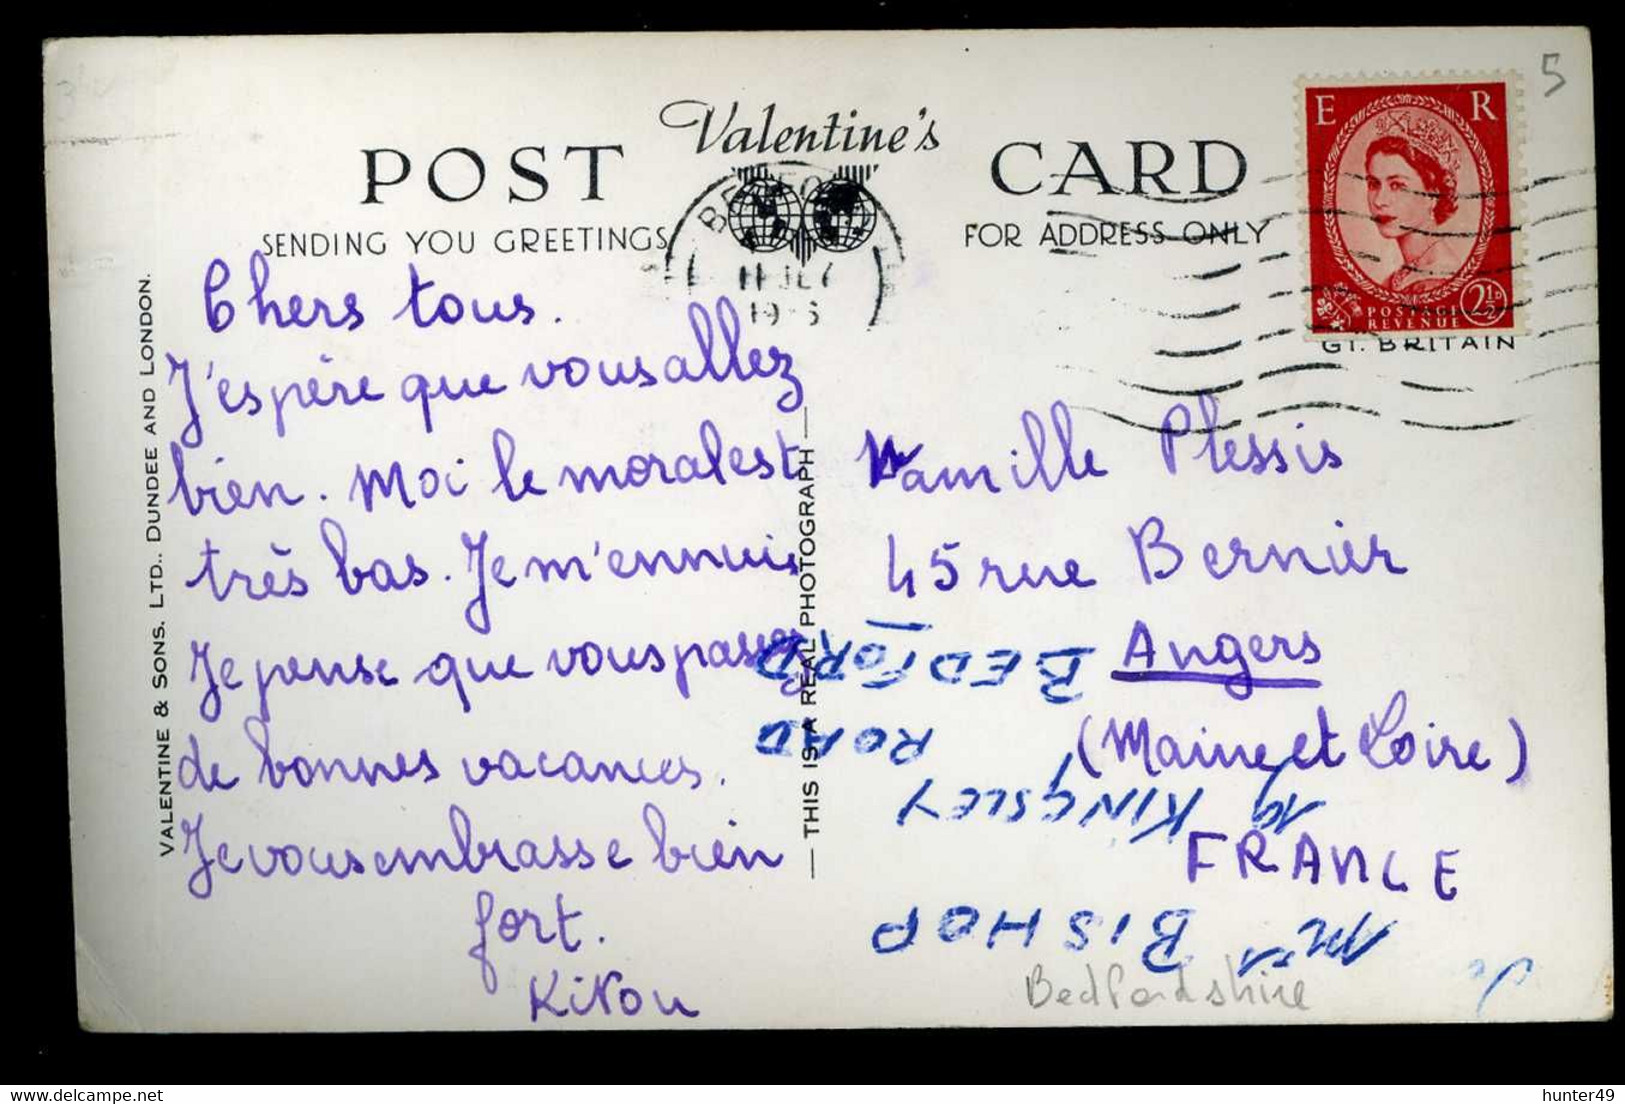 Valentine's
POST CARD
SENDING YOU GREETINGS FOR ADDRESS ONLY
E R
POSTAGE
REVENUE
2½D
GT. BRITAIN
5
Chers tous.
J'espère que vous allez
bien. Moi le moral est
très bas. Je m'ennuie
Je pense que vous passez
de bonnes vacances.
Je vous embrasse bien
fort.
Kikou
Famille Plessis
45 rue Bernier
Angers
(Maine et Loire)
FRANCE
Mrs BISHOP
19 KINGSLEY
ROAD
BEDFORD
Bedfordshire
VALENTINE & SONS. LTD., DUNDEE AND LONDON.
— THIS IS A REAL PHOTOGRAPH —
hunter49